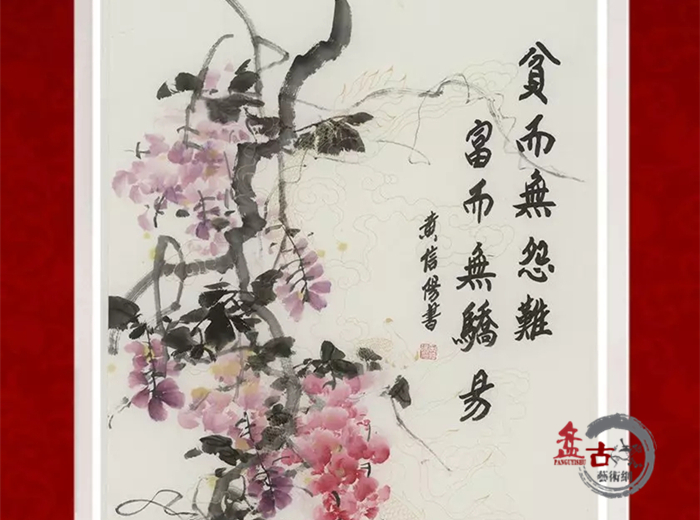 貧而無怨難
富而無驕易
黄信陽書
盘古
PANGUYISHU
藝術網